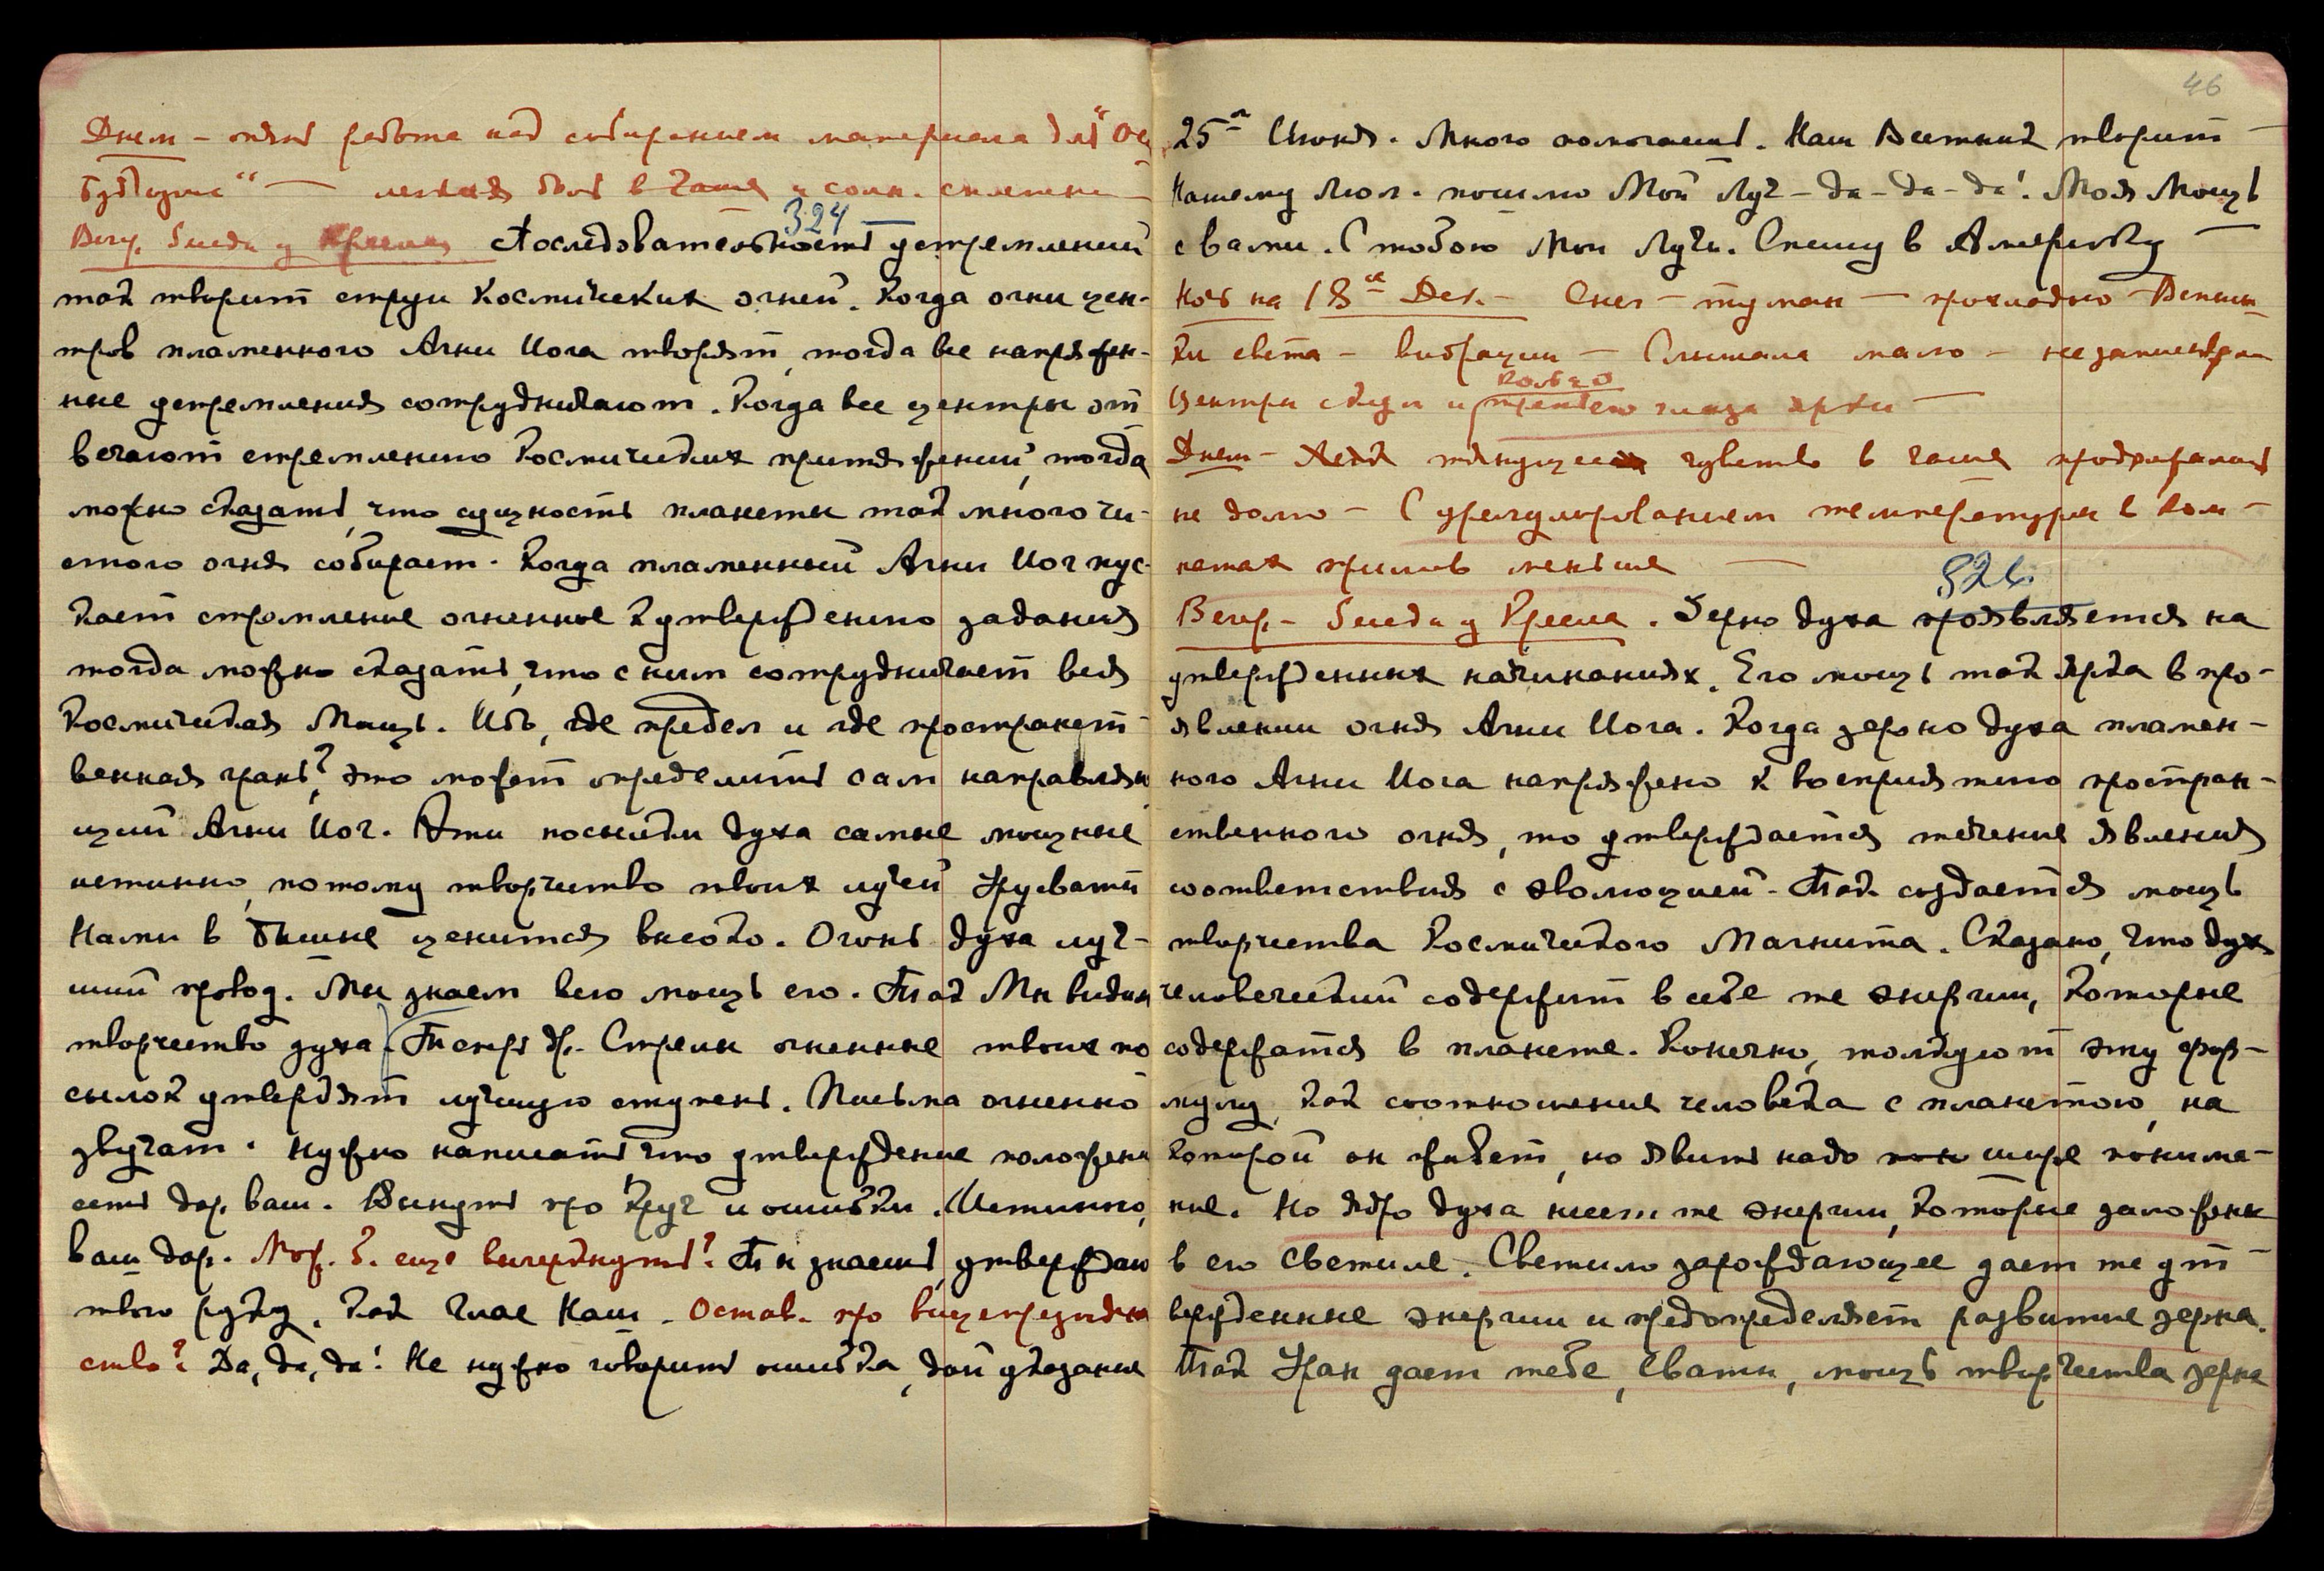 Днем – опять работа над собиранием материала для "Осн.
Буддизма" — легкая боль в Чаше и солн. сплетении —
324
Веч. Беседа у Кресла Последовательность устремлений
так творит струи Космических огней. Когда огни цен-
тров пламенного Агни Йога творят, тогда все напряжен-
ные устремления сотрудничают. Когда все центры от
вечают стремлению Космических притяжений, тогда
можно сказать, что сущность планеты так много чи-
стого огня собирает. Когда пламенный Агни Йог пус-
кает стремление огненное к утверждению задания
тогда можно сказать, что с ним сотрудничает вся
Космическая Мощь. Ибо, где предел и где пространст-
венная грань? это может определить сам направляю
щий Агни Йог. Эти носители духа самые мощные
истинно, потому творчество твоих лучей Урусвати
Нами в Башне ценится высоко. Огонь духа луч-
ший провод. Мы знаем всю мощь его. Так Мы видим
творчество духа. Теперь др. Стрелы огненные твоих по
сылок утвердят лучшую ступень. Письма огненно
звучат. Нужно написать что утверждение положени
есть дар ваш. Вынуть про Круг и ошибки. Истинно,
ваш дар. Мож. б. еще вычеркнуть? Ты знаешь, утверждаю
твою руку. Как Глас Наш. Остав. про вицепрезидент
ство? Да, да, да! Не нужно говорить ошибка, дай указание
46
25ое Июня. Много помогаешь. Наш Вестник творит —
Нашему Люм. пошлю Мой Луч – да – да – да! Моя Мощь
с вами. С тобою Мои Лучи. Спешу в Америку —
Ночь на 18ое Дек. – Снег – туман — прохладно – Вспыш-
ки света – вибрации — Слышала мало – не записывала
кольцо
Центры сердца и третьего глаза ярки —
Днем – тянущее чувство в чаше продолжалось
не долго – С урегулированием температуры в ком-
натах приливов меньше —
326.
Вечер. – Беседа у Кресла. Зерно духа проявляется на
утвержденных начинаниях. Его мощь так ярка в про-
явлении огня Агни Йога. Когда зерно духа пламен-
ного Агни Йога напряжено к восприятию простран-
ственного огня, то утверждается течение явления
соответствия с эволюцией. Так создается мощь
творчества Космического Магнита. Сказано, что дух
человеческий содержит в себе те энергии, которые
содержатся в планете. Конечно, толкуют эту фор-
мулу, как соотношение человека с планетою, на
которой он живет, но явить надо пон шире понима-
ние. Но ядро духа несет те энергии, которые заложены
в его светиле. Светило зарождающее дает те ут-
вержденные энергии и предопределяет развитие зерна.
Так Уран дает тебе, Свати, мощь творчества зерна